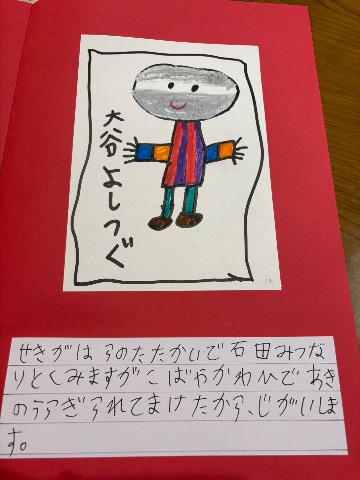 大谷よしつぐ
せきがはらのたたかいで石田みつな
りとくみますがこばやかわひであき
のうらぎられてまけたから、じがいしま
す。